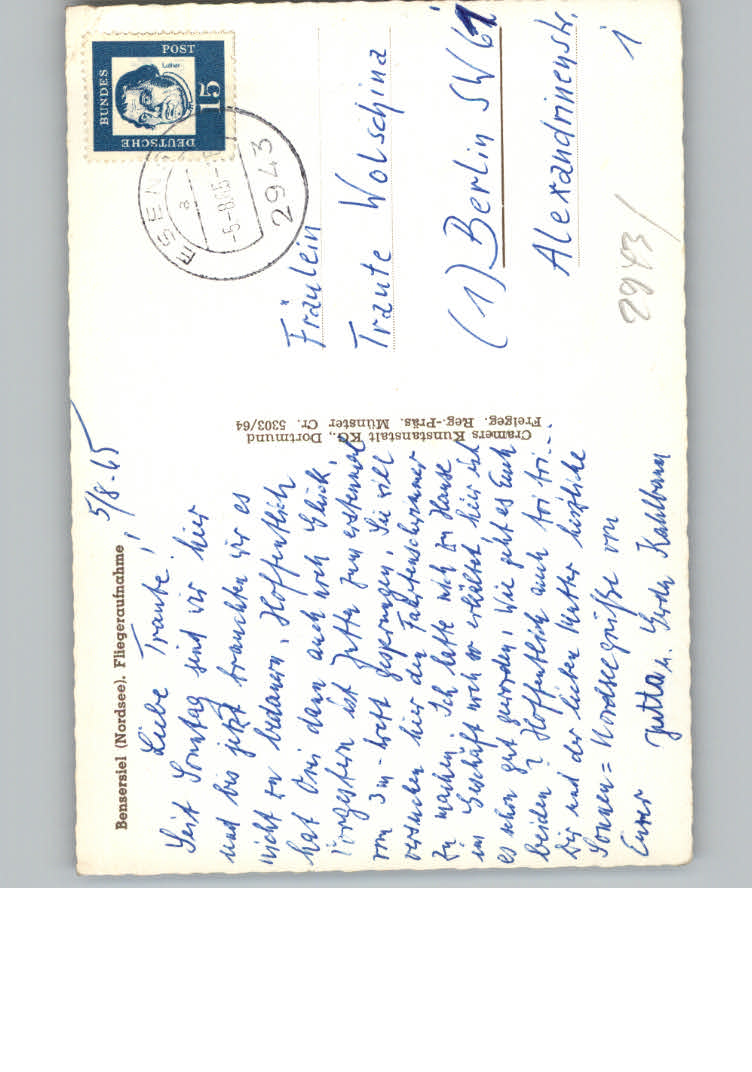 Bensersiel (Nordsee). Fliegeraufnahme
5/8.65
Liebe Traute!
Seit Sonntag sind wir hier
und bis jetzt brauchten wir es
nicht zu bedauern. Hoffentlich
hat Omi dann auch noch Glück.
Vorgestern ist Jutta zum erstenmal
vom 3m-Brett gesprungen. Sie will
versuchen hier den Fahrtenschwimmer
zu machen. Ich hatte mich zu Hause
im Geschäft noch so erkältet hier ist
es schon gut geworden. Wie geht es Euch
beiden? Hoffentlich auch
Dir und der lieben Mutter herzliche
Sonnen= Nordseegrüße von
Eurer Jutta u.
Cramers Kunstanstalt KG., Dortmund
Freigeg. Reg.-Präs. Münster Cr. 5303/64
DEUTSCHE
BUNDES
POST
Luther
15
-6-8.65-
a
2943
Fräulein
Traute Wolschina
(1) Berlin SW 61
Alexandrinenstr.
1
2943/